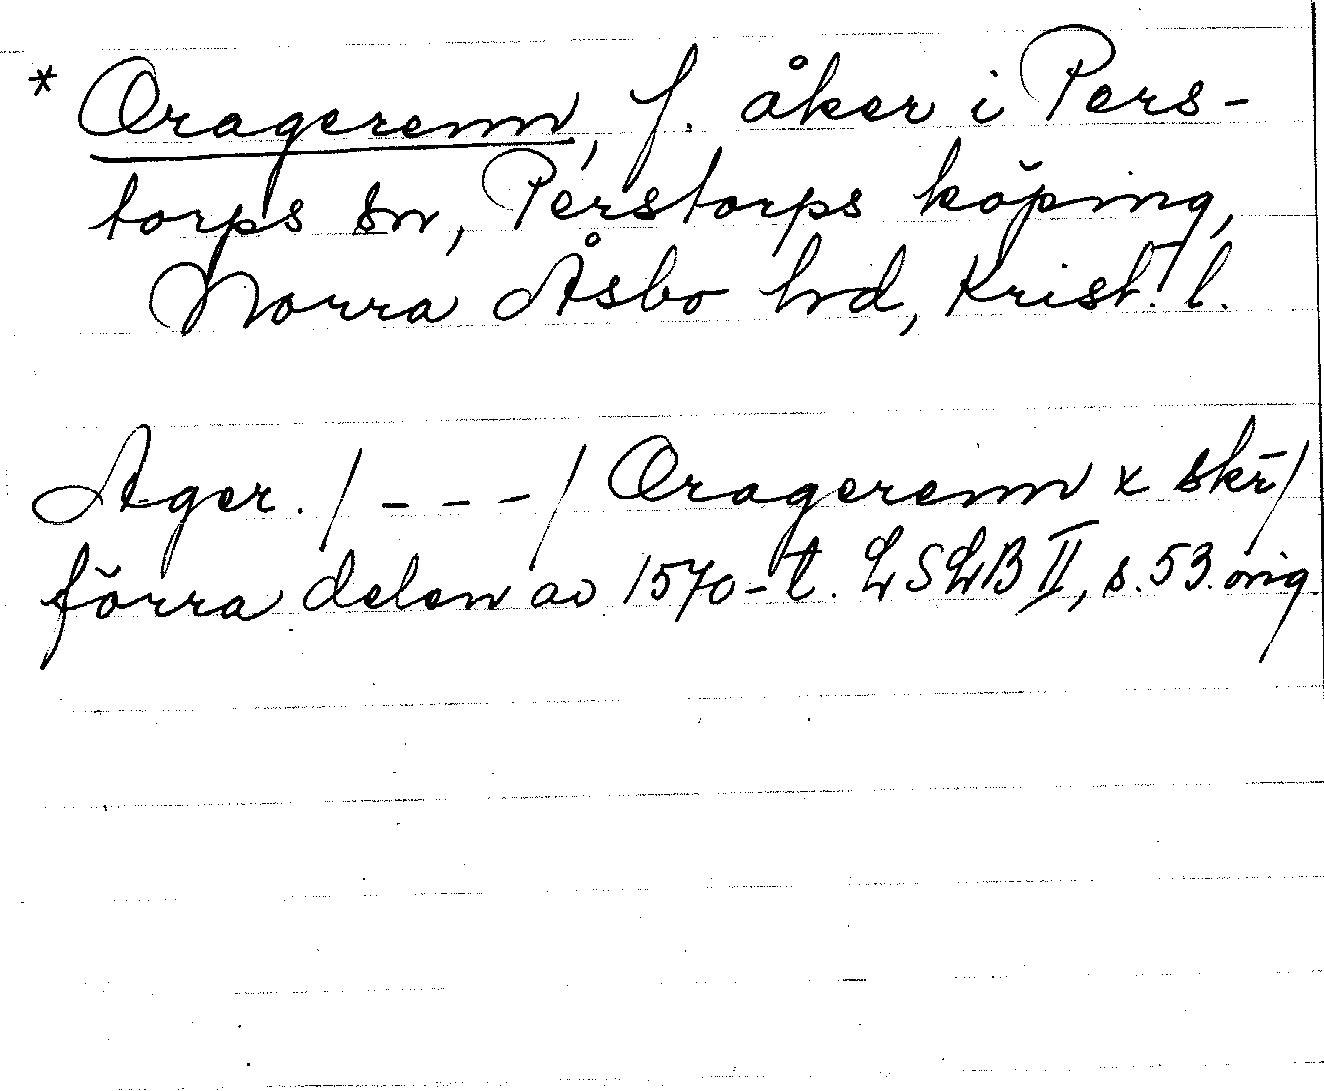 * Oragerenn, f. åker i Pers-
torps sn, Perstorps köping,
Norra Åsbo hd, Krist. l.
Ager. /---/ Oragerenn x skr/
förra delen av 1570-t. LSLB II, s. 53. orig